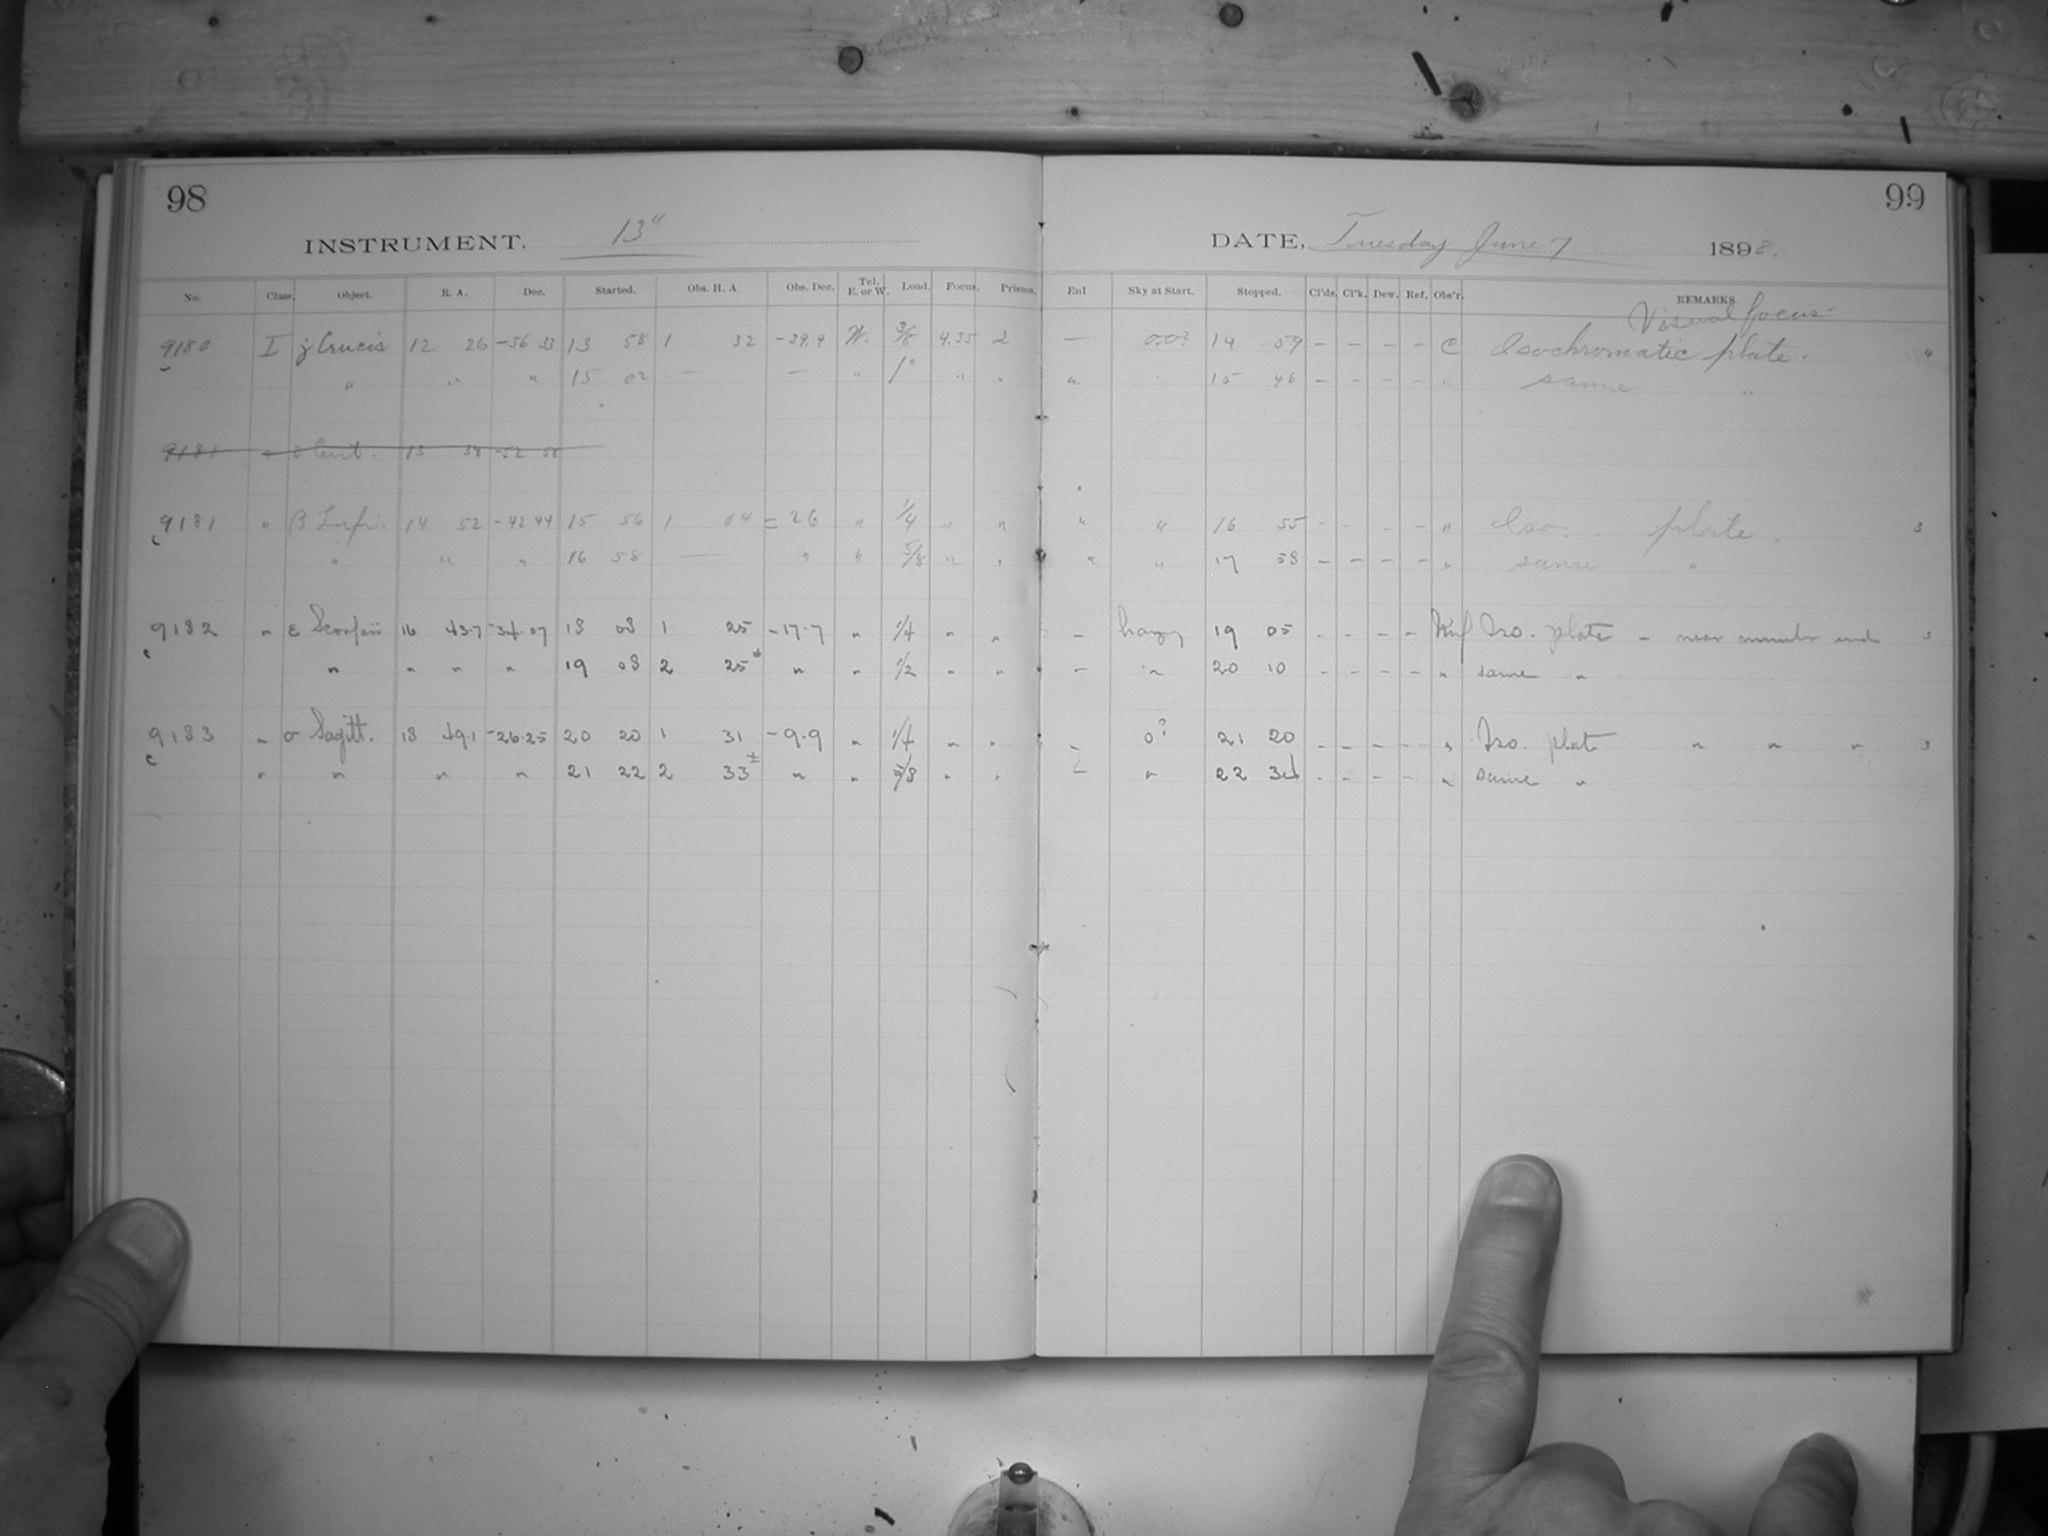 98
99
INSTRUMENT, 13"
DATE, Tuesday June 7 1898.
No. Class. Object. R. A. Dec. Started. Obs. H. A. Obs. Dec. Tel. E. or W. Load. Focus. Prisms. Enl Sky at Start. Stopped. Cl'ds. Cl'k. Dew. Ref. Obs'r. REMARKS.
Visual focus.
9180 I γ Crucis 12 26 -56 33 13 58 1 32 -39.4 W. 3/8 4.35 2 — 0.0? 14 59 - - - - C Isochromatic plate. 4
" " " 15 02 — — " 1? " " " 15 46 - - - - " same "
9181 Cent. 13 34 -52 58
9181 " β Lupi. 14 52 -42 44 15 56 1 04 = 26 " 1/4 " " " " 16 55 - - - - " Iso. plate. 3
" " " 16 58 — " " 5/8 " " " " 17 58 - - - - " same "
9182 " ε Scorpii 16 43.7 -34.07 18 08 1 25 -17.7 " 1/4 " " - hazy 19 05 - - - - Iso. plate - near end 3
" " " " 19 08 2 25± " " 1/2 " " - " 20 10 - - - - " same "
9183 " σ Sagitt. 18 49.1 -26.25 20 20 1 31 -9.9 " 1/4 " " - 0? 21 20 - - - - " Iso. plate " " " 3
" " " " 21 22 2 33± " " 5/8 " " - " 22 34 - - - - " same "